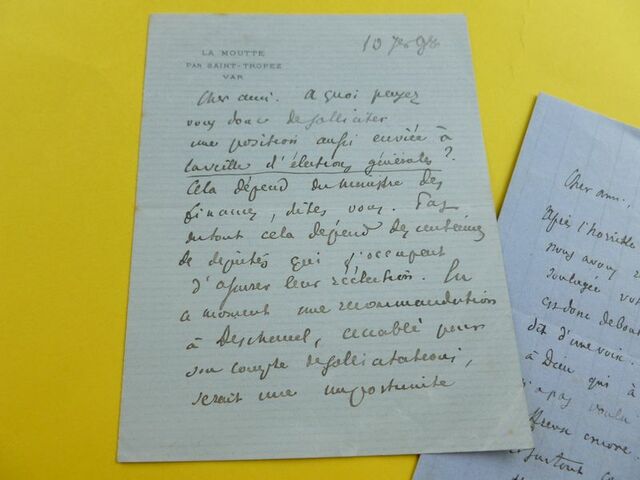 LA MOUTTE
PAR SAINT-TROPEZ
VAR
10
Cher ami. A quoi pensez
vous donc de solliciter
une position aussi enviée à
la veille d'élections générales ?
Cela dépend du ministre des
finances, dites vous. Pas
du tout cela dépend des centaines
de députés qui s'occupent
d'assurer leur réélection. En
ce moment une recommandation
à Deschanel, accablé pour
son compte de sollicitations,
serait une importunité
Cher ami,
Après l'horrible
nous avons
soulagée
est donc debout
dit d'une voix
à Dieu qui a
n'a pas voulu
encore
surtout